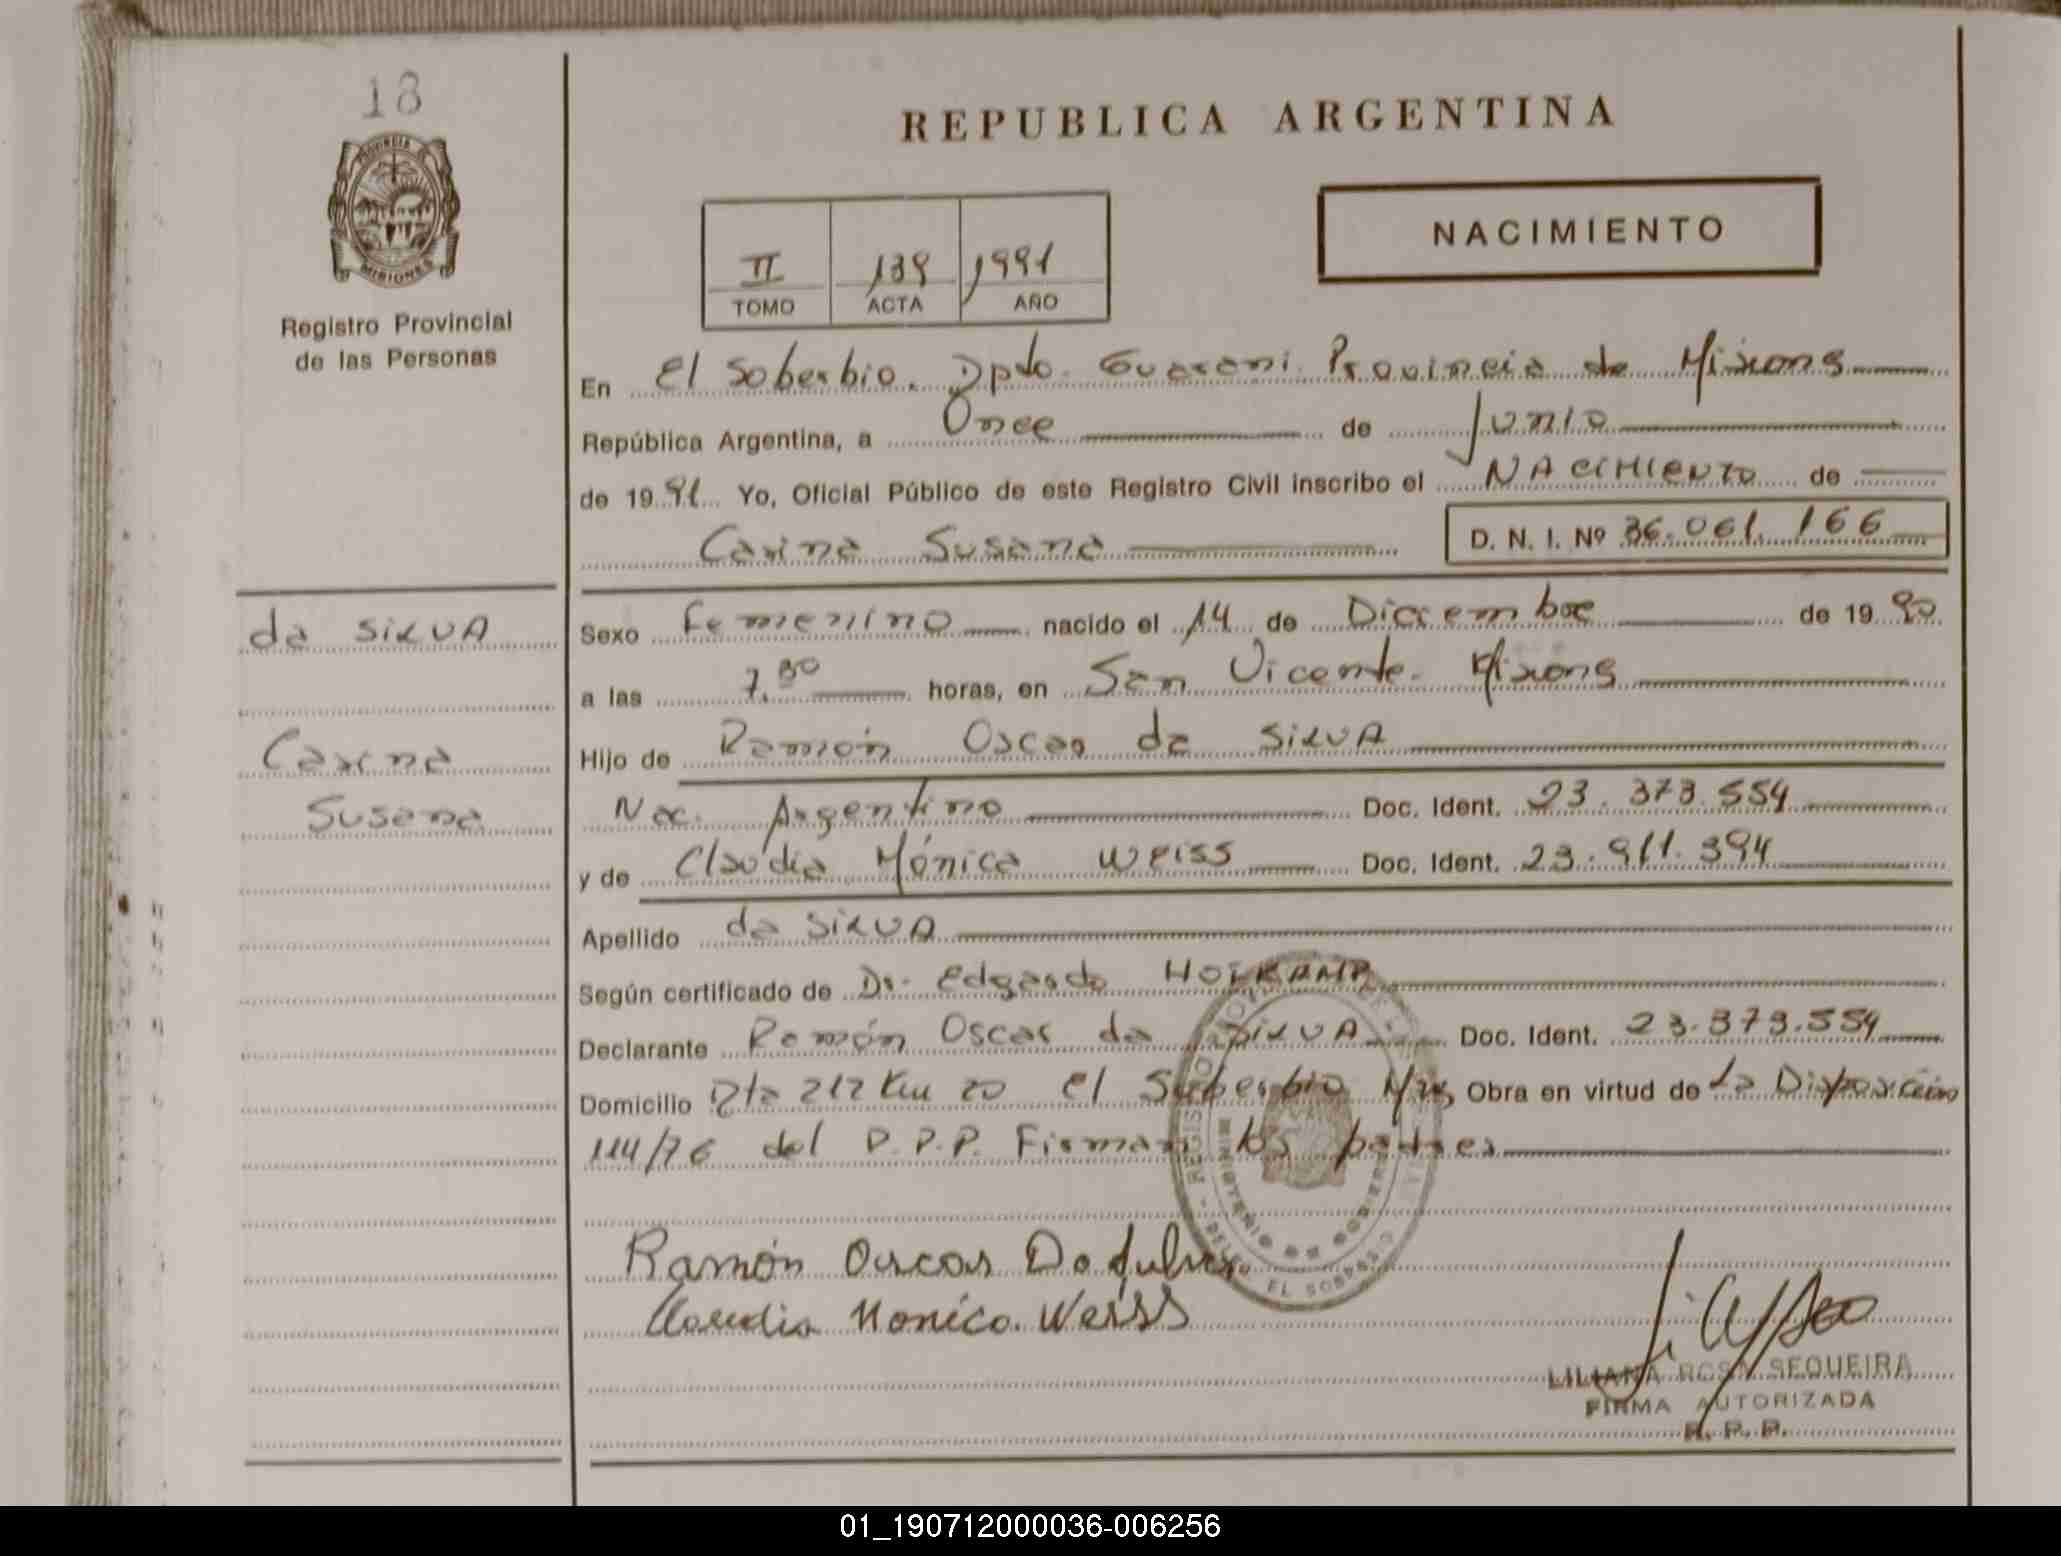 18
PROVINCIA DE
MISIONES
Registro Provincial
de las Personas
da SILVA
Carina
Susana
REPUBLICA ARGENTINA
NACIMIENTO
II 139 1991
TOMO ACTA AÑO
En El Soberbio. Dpto. Guarani. Provincia de Misiones
República Argentina, a Once de Junio
de 1991 Yo, Oficial Público de este Registro Civil inscribo el NACIMIENTO de
Carina Susana D. N. I. Nº 36.061.166
Sexo Femenino nacido el 14 de Diciembre de 1990
a las 7.30 horas, en San Vicente. Misiones
Hijo de Ramón Oscar da SILVA
Nac. Argentino Doc. Ident. 23.373.554
y de Claudia Mónica WEISS Doc. Ident. 23.911.394
Apellido da SILVA
Según certificado de Dr. Edgardo
Declarante Ramón Oscar da SILVA Doc. Ident. 23.373.554
Domicilio Rta 212 Km 20 El Soberbio Mnes Obra en virtud de la Disposición
114/76 del R.P.P. Firman los padres
REGISTRO
MINISTERIO DE GOBIERNO
DELEG. EL SOBERBIO
Ramón Oscar Da Silva
Claudia Monica Weiss
LILIANA ROSA SEQUEIRA
FIRMA AUTORIZADA
R. P. P.
01_190712000036-006256